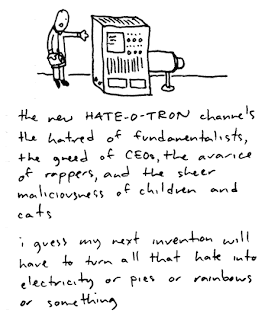 the new HATE-O-TRON channels
the hatred of fundamentalists,
the greed of CEOs, the avarice
of rappers, and the sheer
maliciousness of children and
cats
i guess my next invention will
have to turn all that hate into
electricity or pies or rainbows
or something